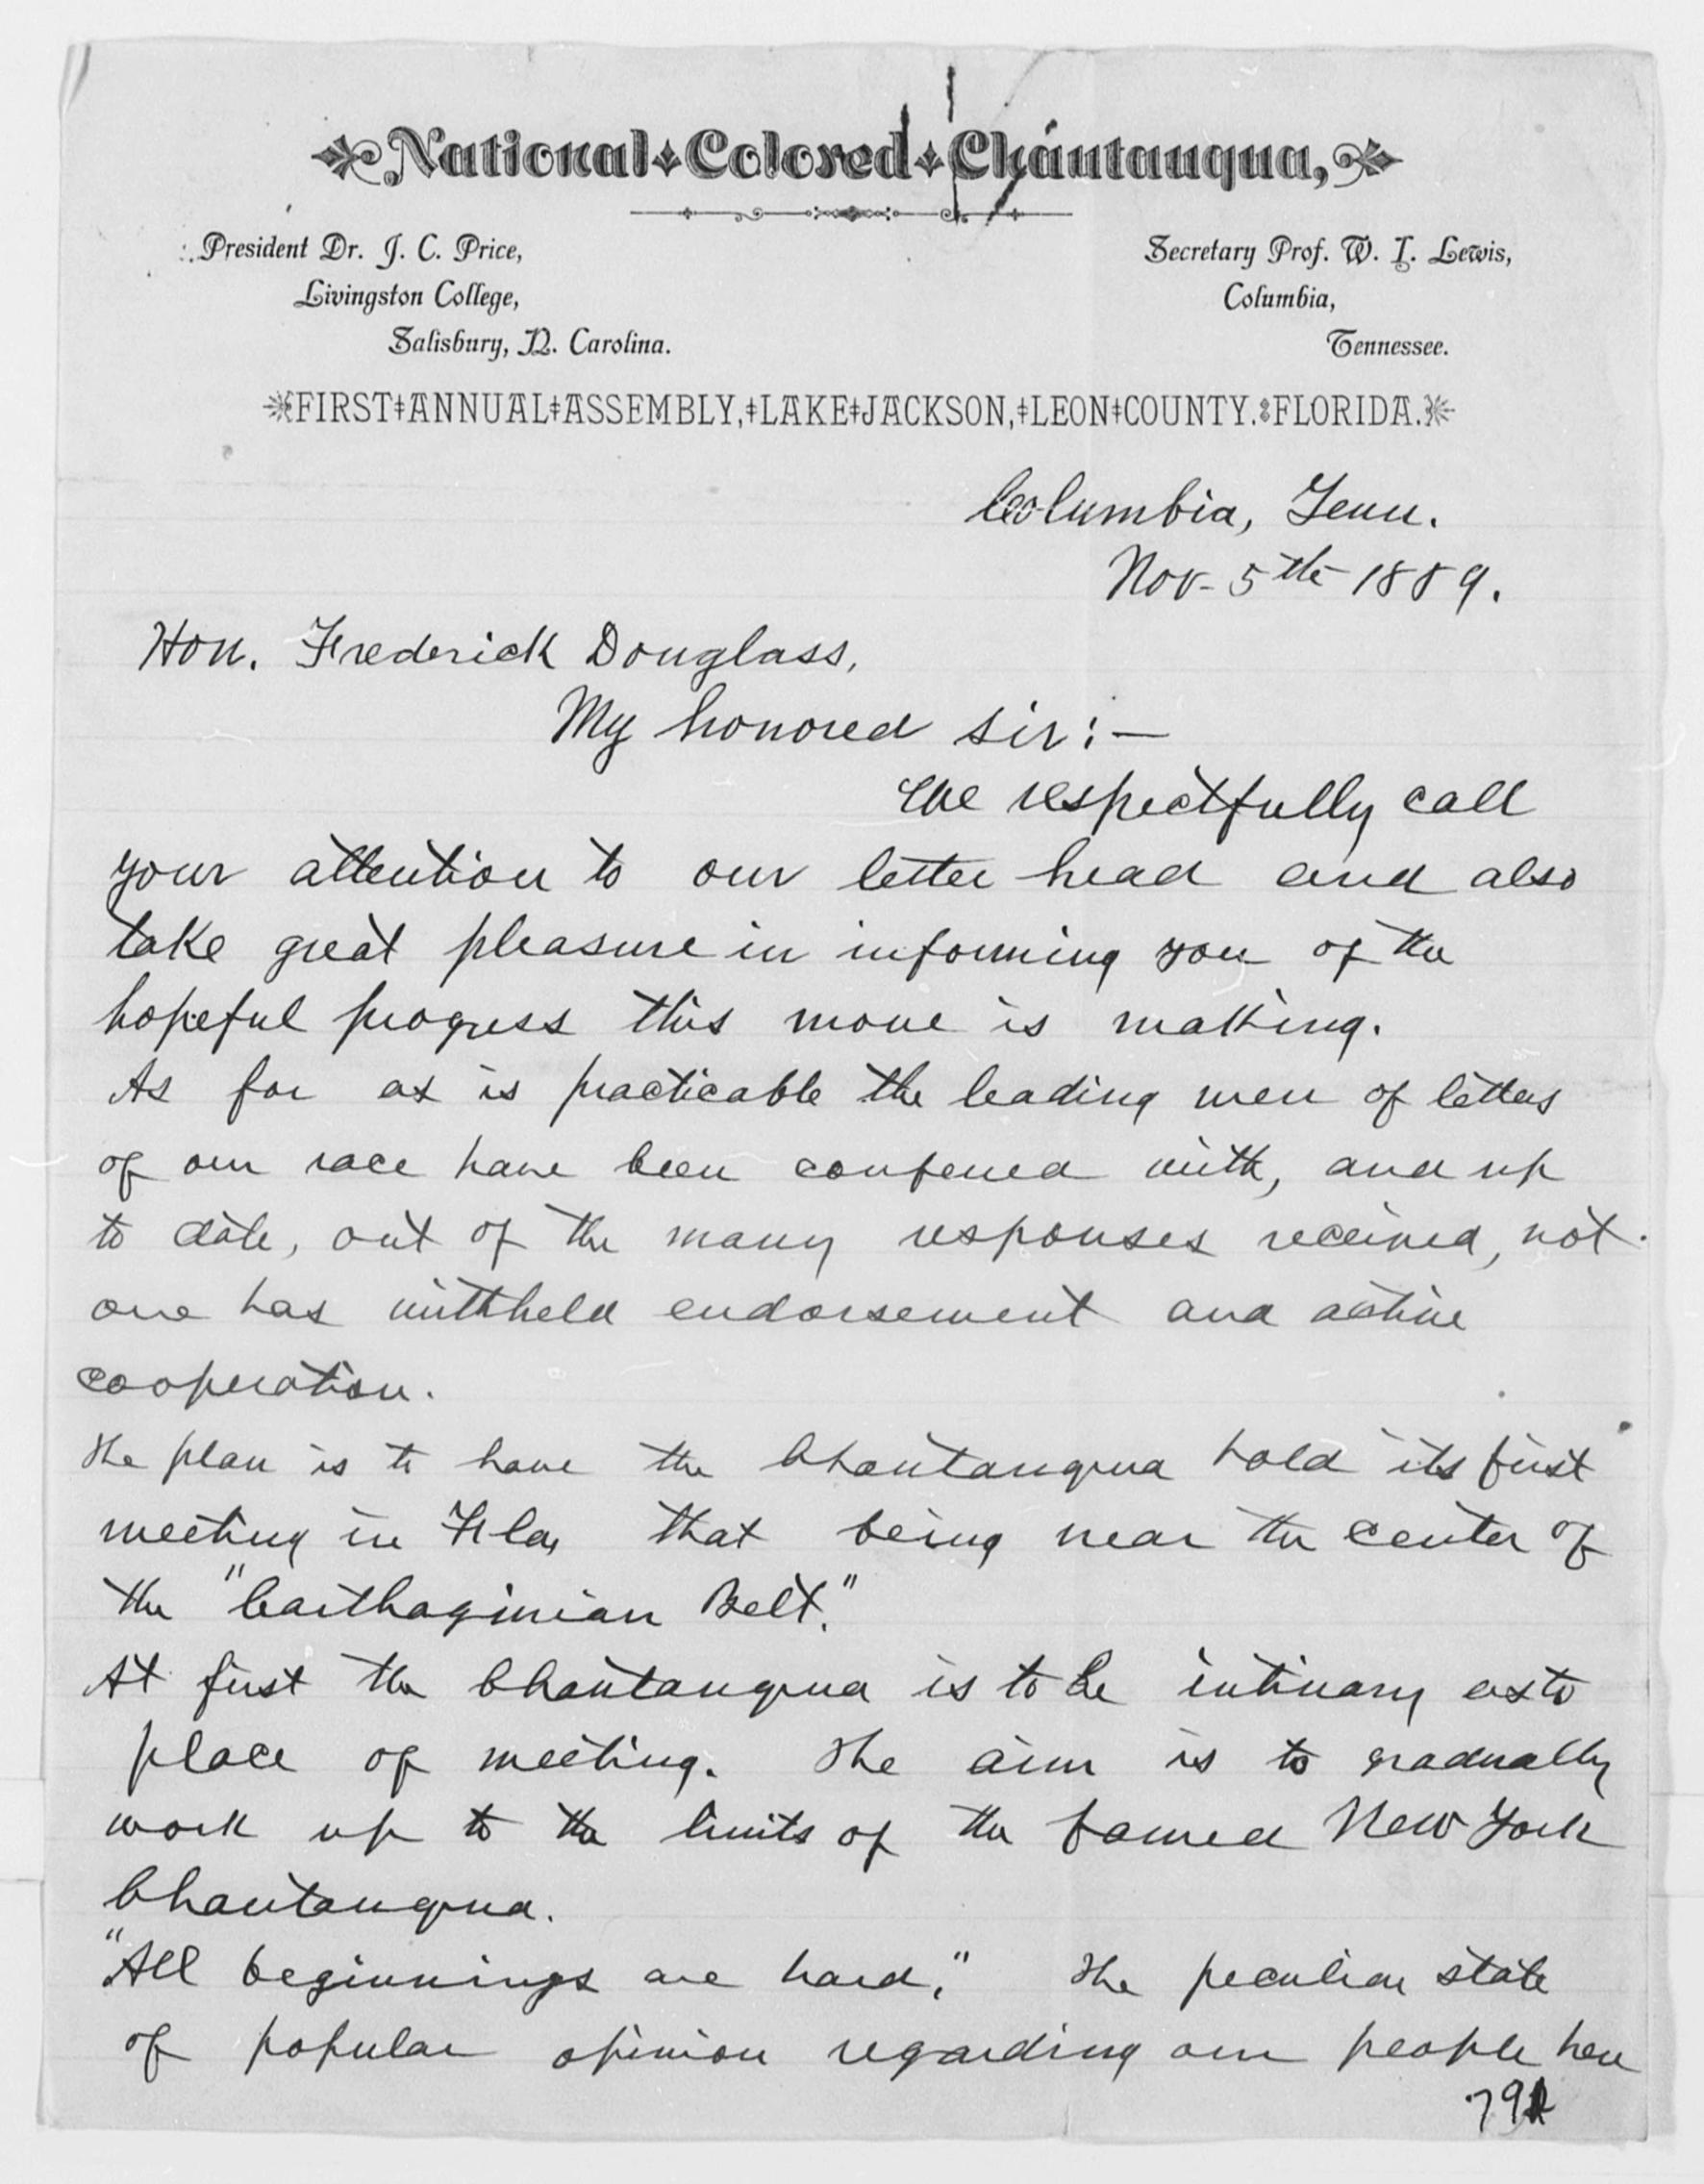 National Colored Chautauqua,
President Dr. J. C. Price,
Livingston College,
Salisbury, N. Carolina.
Secretary Prof. W. I. Lewis,
Columbia,
Tennessee.
FIRST ANNUAL ASSEMBLY, LAKE JACKSON, LEON COUNTY. FLORIDA.
Columbia, Tenn.
Nov. 5th 1889.
Hon. Frederick Douglass,
My honored sir:—
We respectfully call
your attention to our letter head and also
take great pleasure in informing you of the
hopeful progress this move is making.
As far as is practicable the leading men of letters
of our race have been conferred with, and up
to date, out of the many responses received, not
one has withheld endorsement and active
cooperation.
The plan is to have the Chautauqua hold its first
meeting in Fla, that being near the center of
the "Carthaginian Belt."
At first the Chautauqua is to be intinary as to
place of meeting. The aim is to gradually
work up to the limits of the famed New York
Chautauqua.
"All beginnings are hard," The peculiar state
of popular opinion regarding our people here